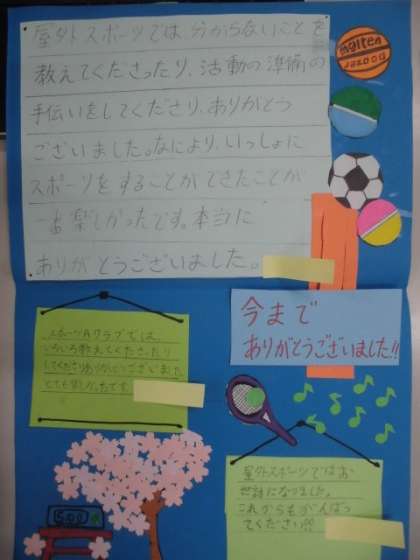 屋外スポーツでは、分からないことを
教えてくださったり、活動の準備の
手伝いをしてくださり、ありがとう
ございました。なにより、いっしょに
スポーツをすることができたことが
一番楽しかったです。本当に
ありがとうございました。
molten
今まで
ありがとうございました!!
スポーツAクラブでは、
いろいろ教えてくださったり
してくださりありがとうございました
とても楽しかったです。
屋外スポーツではお
世話になりました。
これからもがんばっ
てください!!